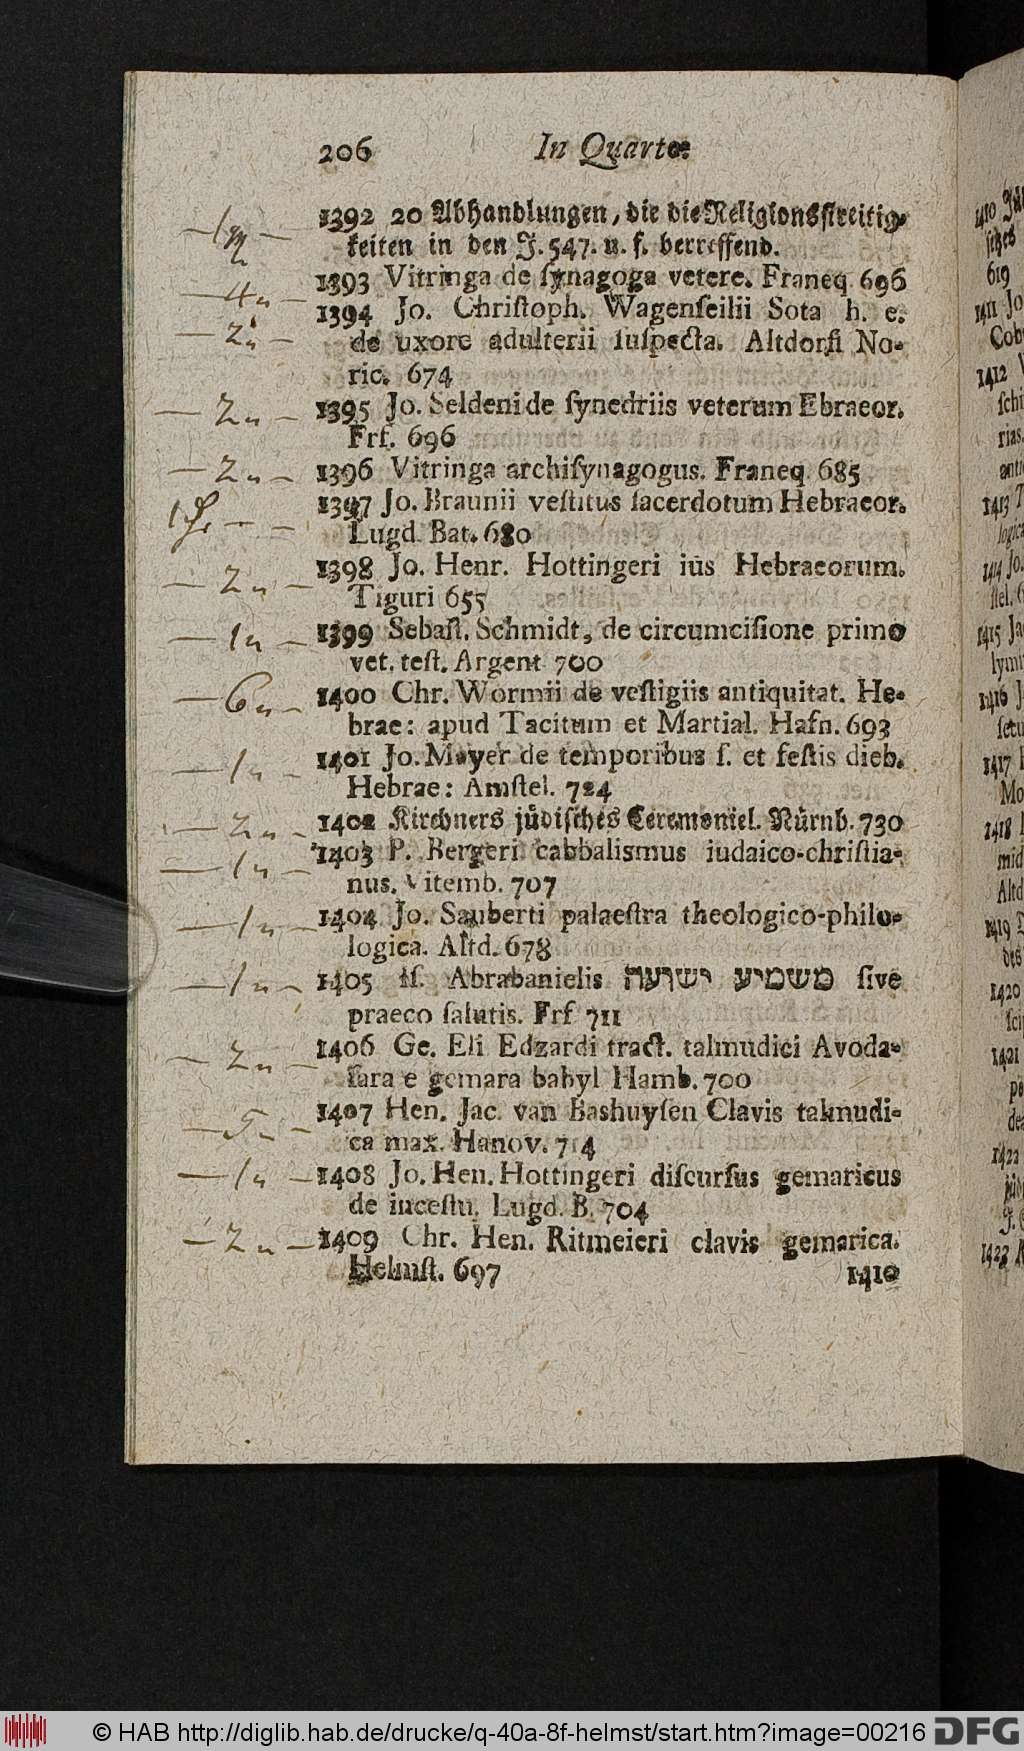 206 In Quarto.
1392 20 Abhandlungen, die die Religionsstreitig-
keiten in den J. 547. u. f. betreffend.
1393 Vitringa de ſynagoga vetere. Franeq. 696
1394 Jo. Chriſtoph. Wagenſeilii Sota h. e.
de uxore adulterii ſuſpecta. Altdorfi No-
ric. 674
1395 Jo. Seldeni de ſynedriis veterum Ebraeor.
Frf. 696
1396 Vitringa archiſynagogus. Franeq. 685
1397 Jo. Braunii veſtitus ſacerdotum Hebraeor.
Lugd. Bat. 680
1398 Jo. Henr. Hottingeri ius Hebraeorum.
Tiguri 655
1399 Sebaſt. Schmidt, de circumciſione primo
vet. teſt. Argent 700
1400 Chr. Wormii de veſtigiis antiquitat. He-
brae: apud Tacitum et Martial. Hafn. 693
1401 Jo. Mayer de temporibus ſ. et feſtis dieb.
Hebrae: Amſtel. 724
1402 Kirchners jüdisches Ceremoniel. Nürnb. 730
1403 P. Bergeri cabbalismus iudaico-chriſtia-
nus. Vitemb. 707
1404 Jo. Sauberti palaeſtra theologico-philo-
logica. Altd. 678
1405 Iſ. Abrabanielis משמיע ישועה ſive
praeco ſalutis. Frf 711
1406 Ge. Eli Edzardi tract. talmudici Avoda-
ſara e gemara babyl Hamb. 700
1407 Hen. Jac. van Bashuyſen Clavis talmudi-
ca max. Hanov. 714
1408 Jo. Hen. Hottingeri diſcurſus gemaricus
de inceſtu. Lugd. B. 704
1409 Chr. Hen. Ritmeieri clavis gemarica.
Helmſt. 697
1410
© HAB http://diglib.hab.de/drucke/q-40a-8f-helmst/start.htm?image=00216 DFG